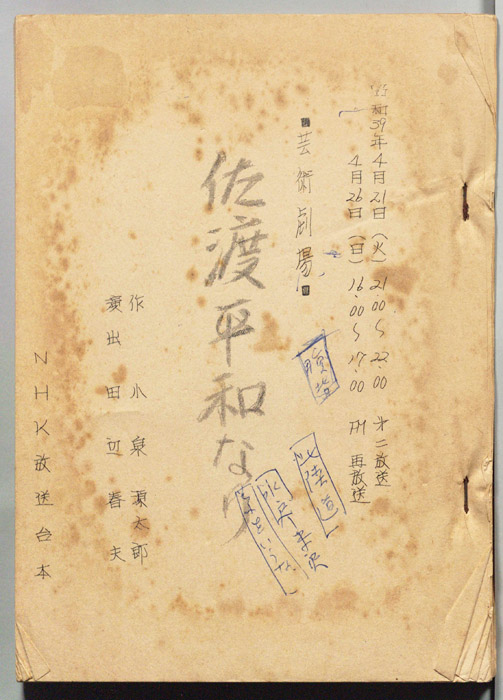 昭和39年4月21日(火)21.00~22.00 第二放送
4月26日(日)16.00~17.00 FM 再放送
芸術劇場
佐渡平和なり
作 小泉源太郎
演出 田辺春夫
NHK放送台本
北陸道